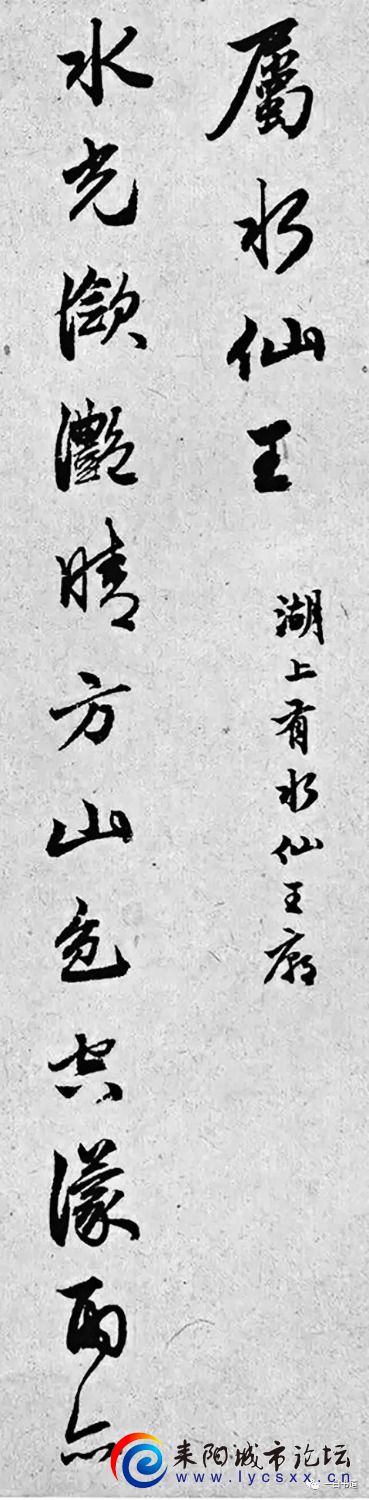 屬水仙王
湖上有水仙王廟
水光瀲灩晴方山色空濛雨亦
耒阳城市论坛
www.lycsxx.cn